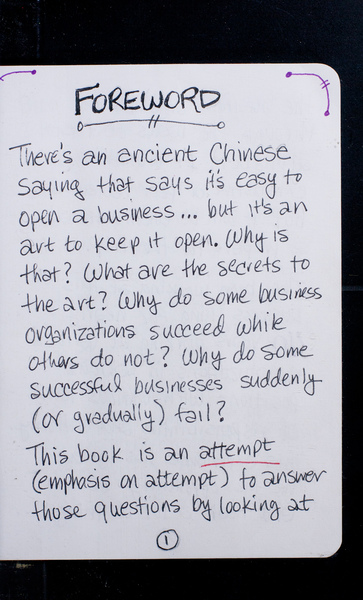 FOREWORD
There's an ancient Chinese
saying that says it's easy to
open a business... but it's an
art to keep it open. Why is
that? What are the secrets to
the art? Why do some business
organizations succeed while
others do not? Why do some
successful businesses suddenly
(or gradually) fail?
This book is an attempt
(emphasis on attempt) to answer
those questions by looking at
1